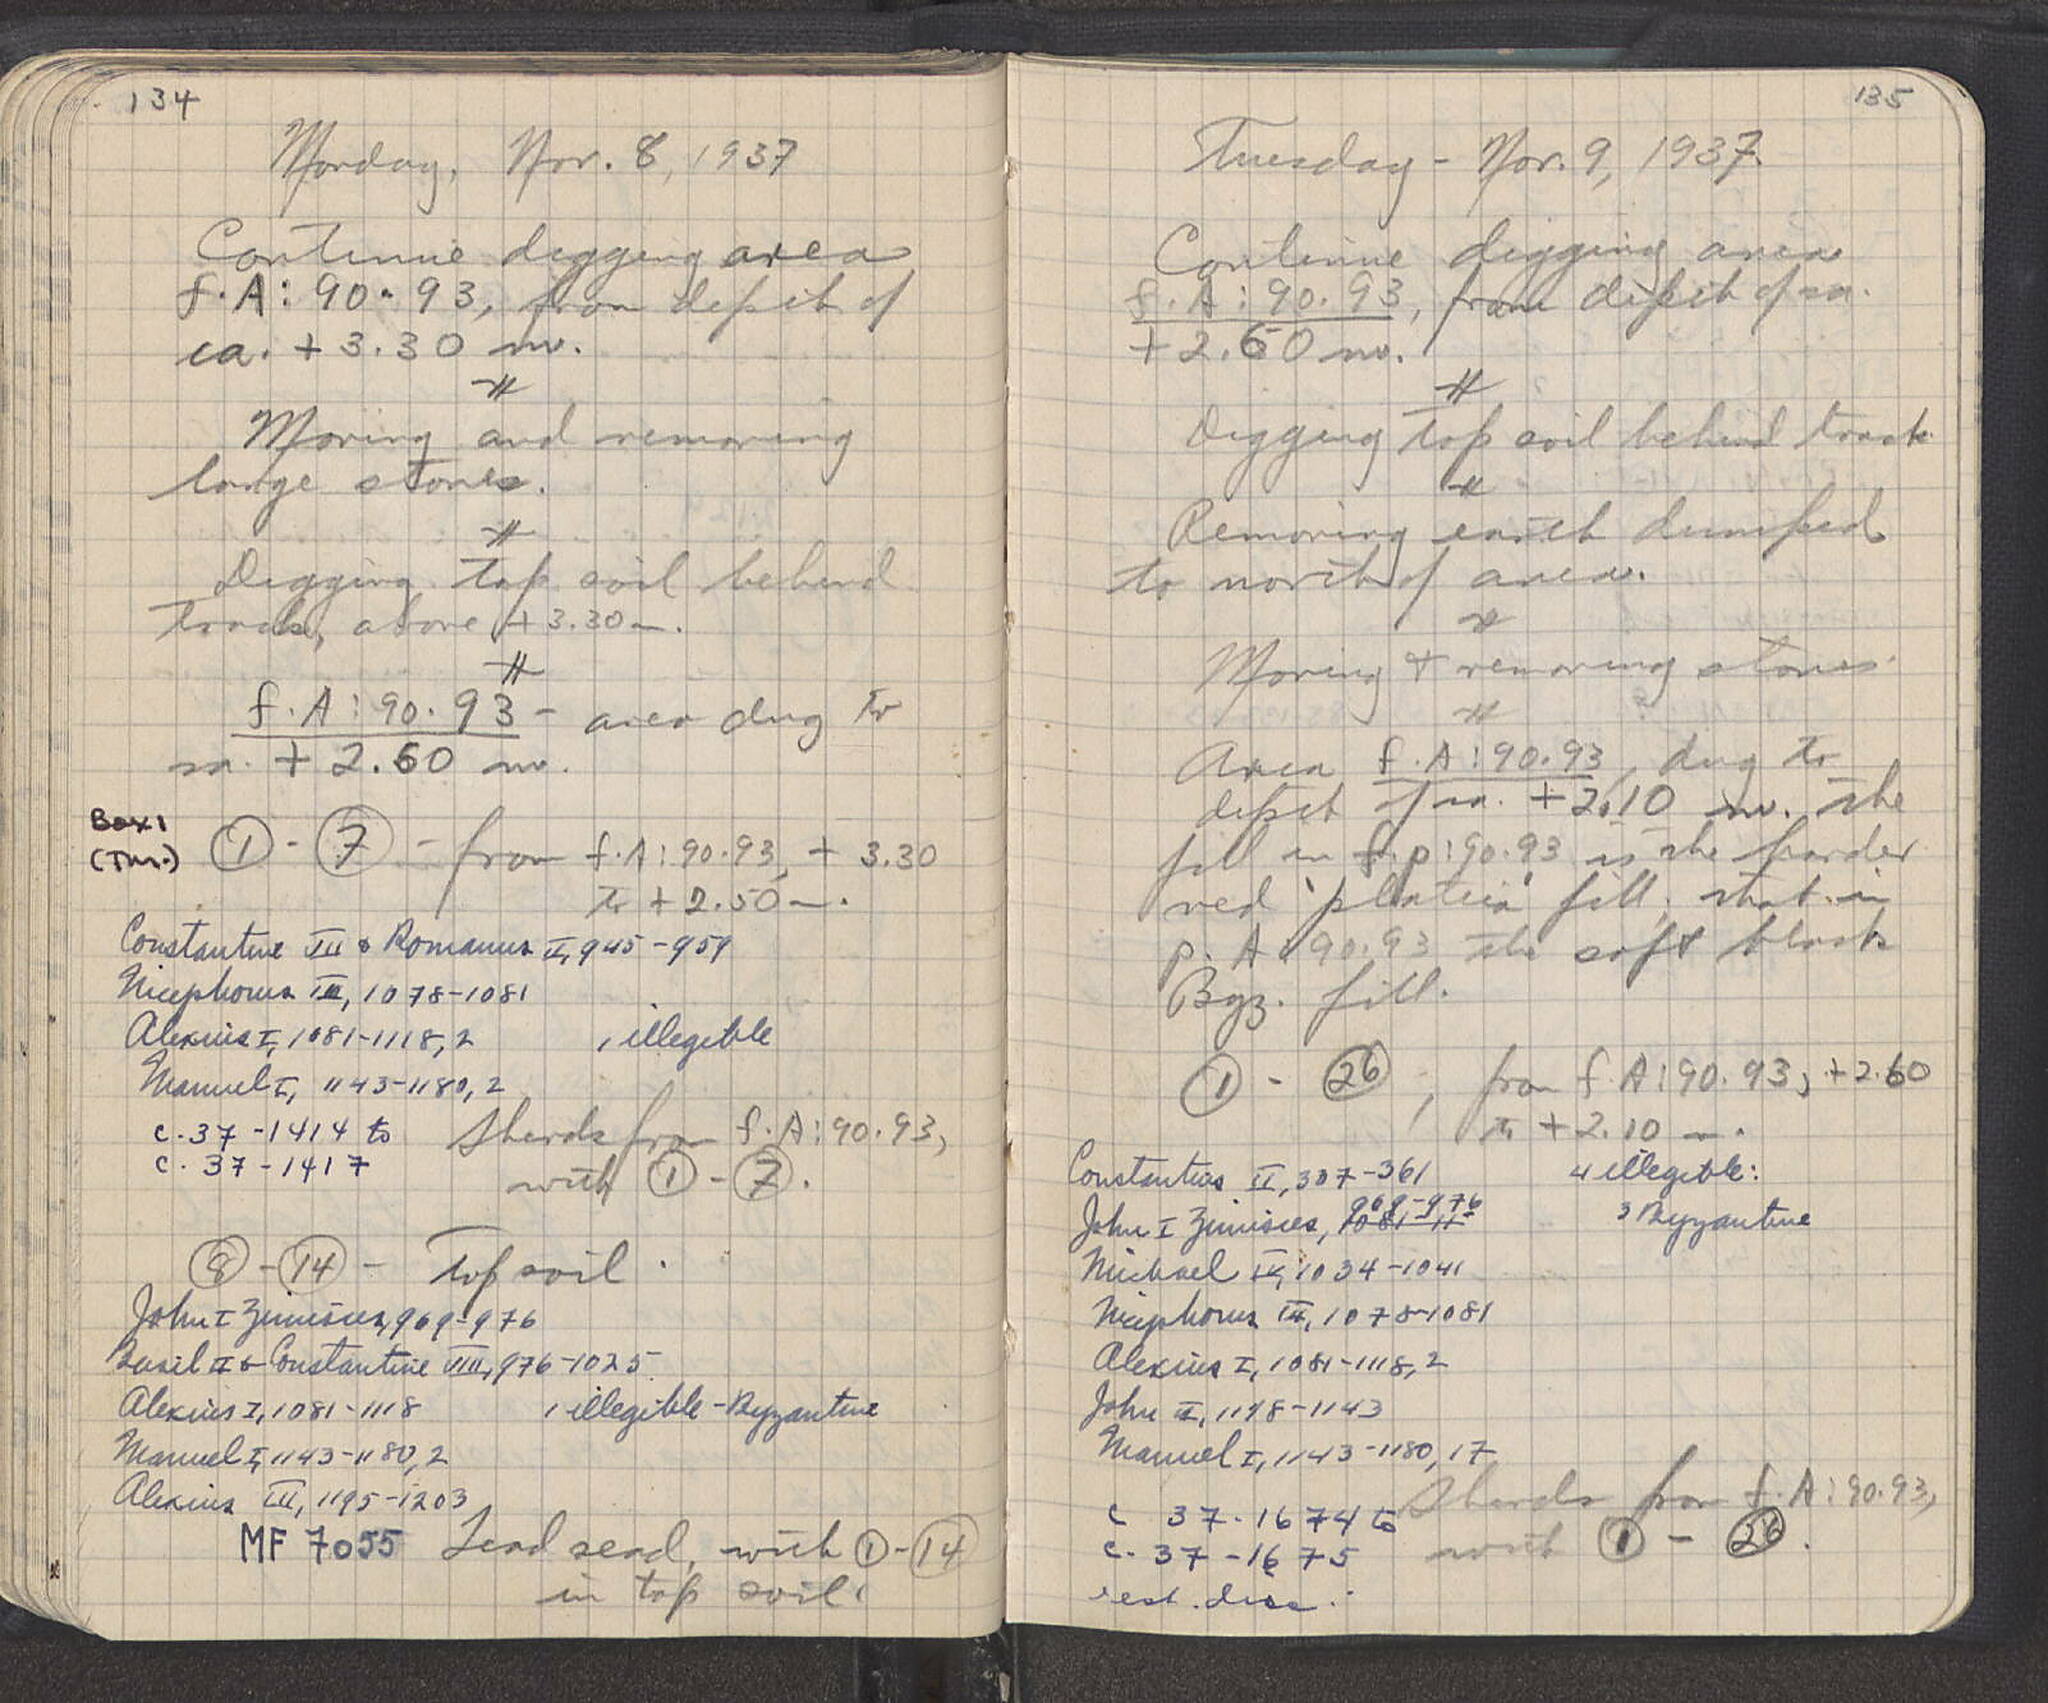 134
Monday, Nov. 8, 1937
Continue digging area
f.A:90-93, from depth of
ca. +3.30 m.
Moving and removing
large stones.
Digging top soil behind
track, above +3.30 m.
f.A:90.93 - area dug to
ca. +2.60 m.
Box 1
(Tm.)
① - ⑦ - from f.A:90.93, +3.30
to +2.50 m.
Constantine VII & Romanus II, 945-959
Nicephorus III, 1078-1081
Alexius I, 1081-1118, 2
1 illegible
Manuel I, 1143-1180, 2
C.37-1414 to
C.37-1417
Sherds from f.A:90.93,
with ① - ⑦.
⑧ - ⑭ - Top soil.
John I Zimisces, 969-976
Basil II & Constantine VIII, 976-1025
Alexius I, 1081-1118
1 illegible - Byzantine
Manuel I, 1143-1180, 2
Alexius III, 1195-1203
MF 7055 Lead seal, with ① - ⑭
in top soil.
135
Tuesday - Nov. 9, 1937.
Continue digging area
f.A:90.93, from depth of ca.
+2.60 m.
Digging top soil behind track.
Removing earth dumped
to north of area.
Moving & removing stones.
Area f.A:90.93, dug to
depth of ca. +2.10 m. The
fill in f.p:90.93 is the harder
red 'plateia' fill; that in
p.A:90.93 the soft black
Byz. fill.
① - ㉖, from f.A:90.93, +2.60
to +2.10 m.
Constantius II, 337-361
4 illegible:
John I Zimisces, 1081-11 969-976
3 Byzantine
Michael IV, 1034-1041
Nicephorus III, 1078-1081
Alexius I, 1081-1118, 2
John II, 1118-1143
Manuel I, 1143-1180, 17
Sherds from f.A:90.93,
with ① - ㉖.
C 37-1674 to
C.37-1675
rest. disc.